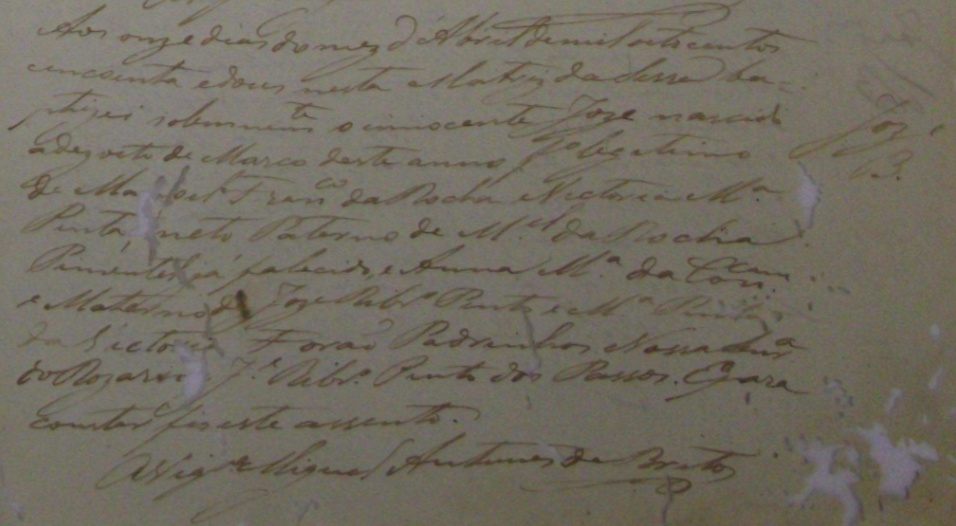 Aos onze dias do mez d'Abril de mil oito centos
cincoenta e dous nesta Matriz da Serra ba-
ptizei solemnem.te o innocente Joze nascido
a dezoito de Março deste anno, f.o legitimo
de Manoel Fran.co da Rocha e Victoria M.a
Pinta, neto Paterno de M.el da Rocha
Pimentel já falecido, e Anna M.a da Con.cam
e Materno de Joze Rib.o Pinto e M.a Pinta
da Victoria Forão Padrinhos Nossa Snr.a
do Rozario J.e Rib.o Pinto dos Passos. E para
constar fis este assento.
O Vig.ro Miguel Antunes de Brito
Joz.e
B.